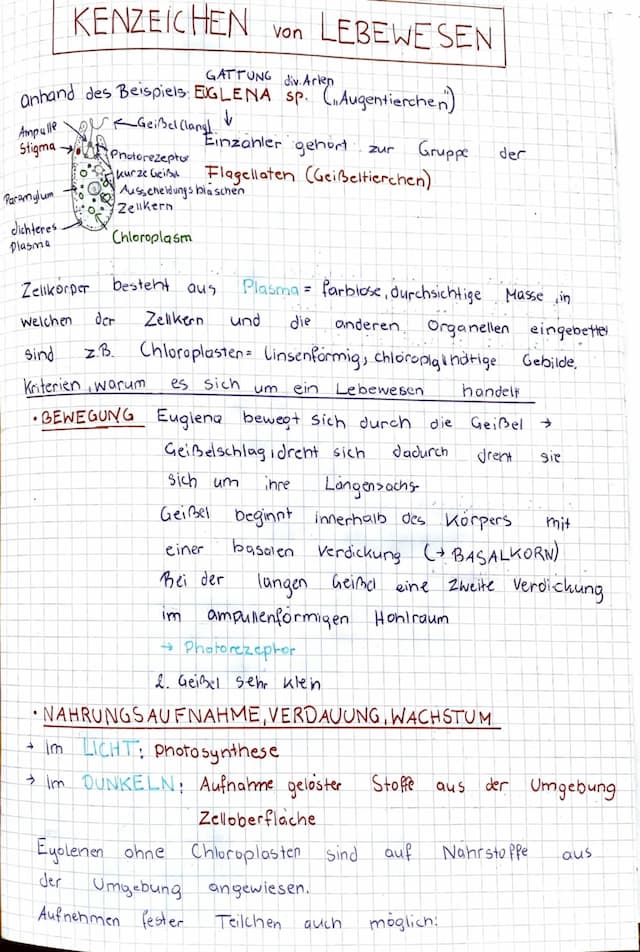 KENZEICHEN von LEBEWESEN
GATTUNG div. Arten
anhand des Beispiels: EUGLENA sp. („Augentierchen")
Ampulle
Geißel (lang)
Einzähler gehört zur Gruppe der
Stigma
Photorezeptor
kurze Geißel
Flagellaten (Geißeltierchen)
Paramylum
Ausscheidungsbläschen
Zellkern
dichteres
Plasma
Chloroplasm
Zellkörper besteht aus Plasma = farblose, durchsichtige Masse, in
welchen der Zellkern und die anderen Organellen eingebettet
sind z.B. Chloroplasten = linsenförmig, Gebilde.
Kriterien, warum es sich um ein Lebewesen handelt
• BEWEGUNG Euglena bewegt sich durch die Geißel →
Geißelschlag, dreht sich dadurch dreht sie
sich um ihre Längensachs
Geißel beginnt innerhalb des Körpers mit
einer basalen Verdickung (→ BASALKORN)
Bei der langen Geißel eine zweite Verdichung
im ampullenförmigen Hohlraum
→ Photorezeptor
2. Geißel sehr klein
• NAHRUNGSAUFNAHME, VERDAUUNG, WACHSTUM
→ Im LICHT: photosynthese
→ Im DUNKELN: Aufnahme gelöster Stoffe aus der Umgebung
Zelloberfläche
Eyglenen ohne Chloroplasten sind auf Nährstoffe aus
der Umgebung angewiesen.
Aufnehmen fester Teilchen auch möglich: